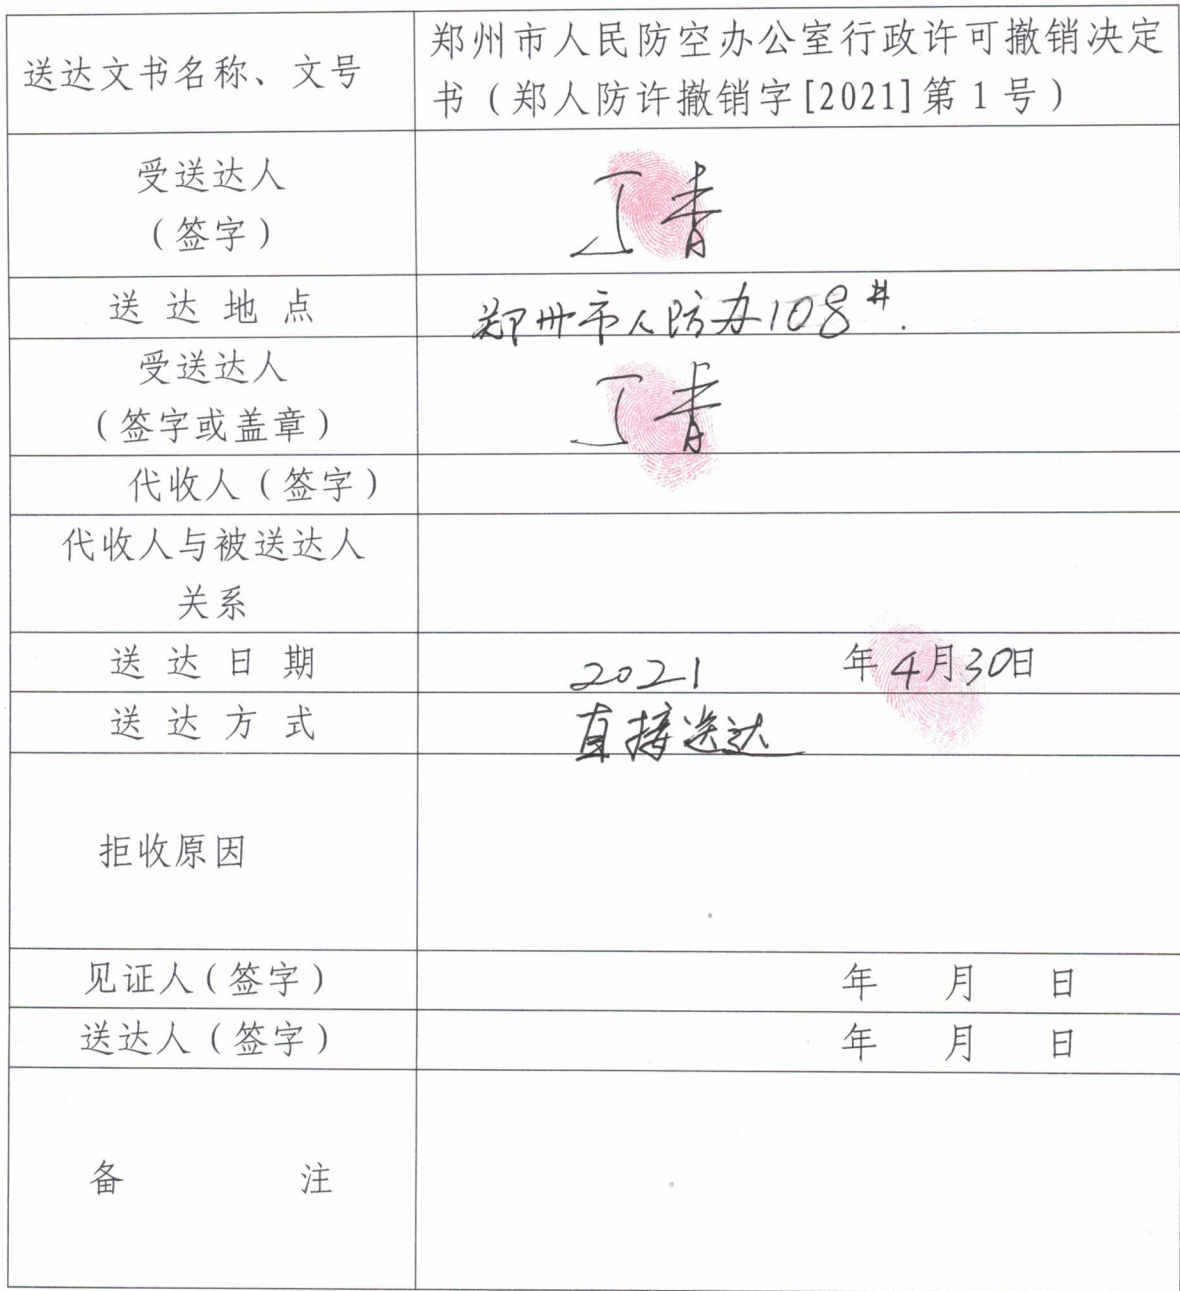 送达文书名称、文号
郑州市人民防空办公室行政许可撤销决定
书（郑人防许撤销字[2021]第1号）
受送达人
（签字）
丁青
送达地点
郑州市人防办108#.
受送达人
（签字或盖章）
丁青
代收人（签字）
代收人与被送达人
关系
送达日期
2021 年4月30日
送达方式
直接送达
拒收原因
见证人（签字）
年 月 日
送达人（签字）
年 月 日
备 注